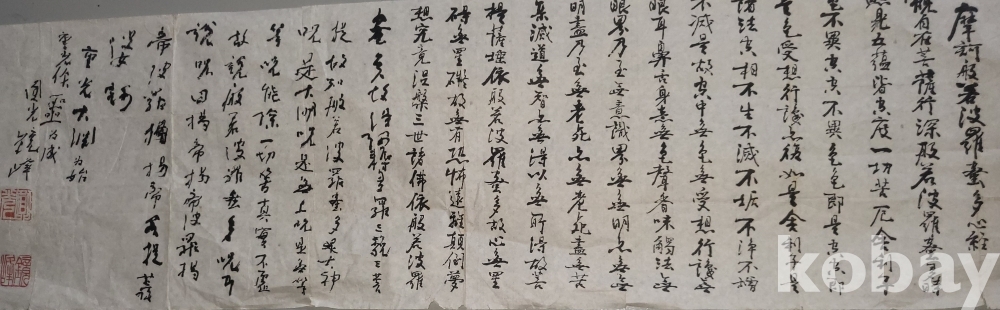 摩訶般若波羅蜜多心経
觀自在菩薩行深般若波羅蜜多時
照見五蘊皆空度一切苦厄舍利子
色不異空空不異色色即是空空即
是色受想行識亦復如是舍利子是
諸法空相不生不滅不垢不淨不增
不減是故空中無色無受想行識無
眼耳鼻舌身意無色聲香味觸法無
眼界乃至無意識界無無明亦無無
明盡乃至無老死亦無老死盡無苦
集滅道無智亦無得以無所得故菩
提薩埵依般若波羅蜜多故心無罣
礙無罣礙故無有恐怖遠離顛倒夢
想究竟涅槃三世諸佛依般若波羅
蜜多故得阿耨多羅三藐三菩
提故知般若波羅蜜多是大神
呪是大明呪是無上呪是無等
等呪能除一切苦真實不虛
故說般若波羅蜜多呪即
說呪曰揭帝揭帝波羅揭
帝波羅僧揭帝菩提薩
婆訶
圓光 鏡峰
kobay